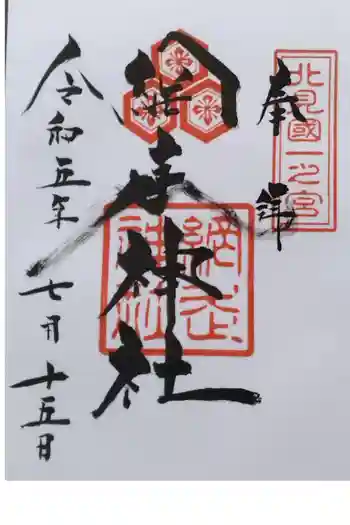 北見國一之宮
奉拝
網走神社
網走
神社
令和五年七月十五日